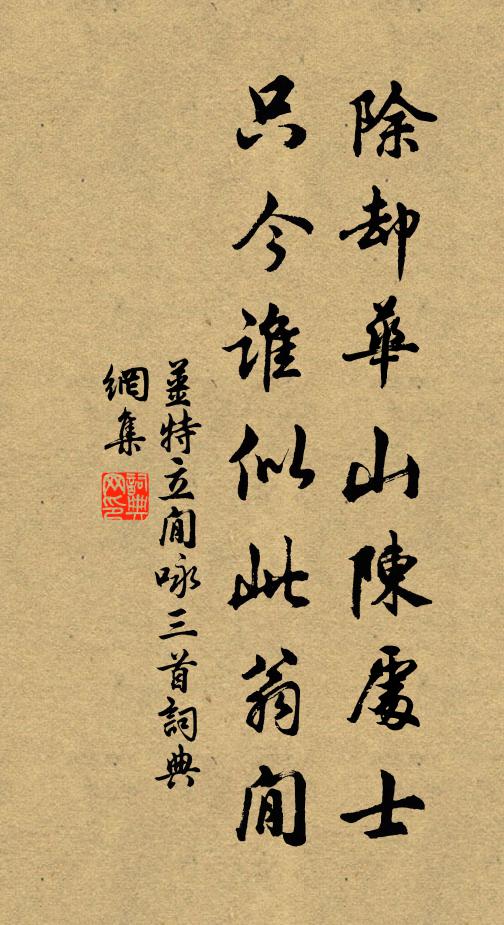 除却華山陳處士
只今誰似此翁閒
姜特立閒咏三首詞典
網集
詞典网印